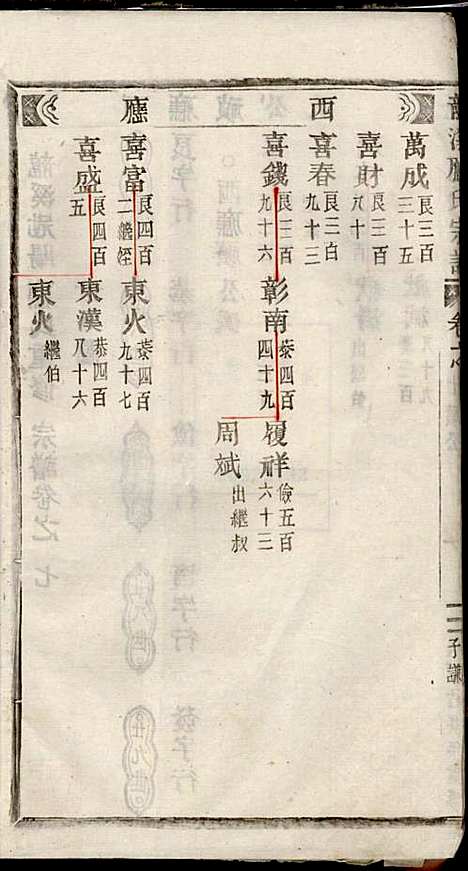 西廳
萬成 艮三百三十五
喜財 艮三百八十
喜春 艮三百九十三
喜錢 艮三百九十六
彰南 恭四百四十九
履祥 儉五百六十三
周斌 出繼叔
喜富 艮四百二繼姪
東火 恭四百九十七
喜盛 艮四百五
東漢 恭四百八十六
東火 繼伯
子謙